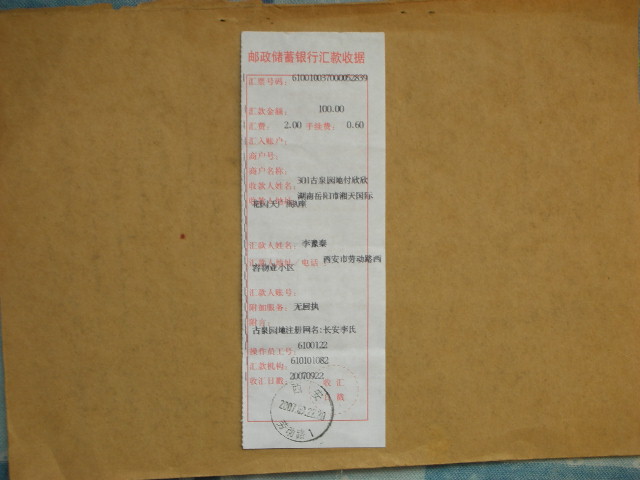 邮政储蓄银行汇款收据
汇票号码: 610010037000052839
汇款金额: 100.00
汇费: 2.00 手续费: 0.60
汇入账户:
商户号:
商户名称:
收款人姓名: 301古泉园地付欣欣
收款人地址: 湖南岳阳市湘天国际
花园天广
汇款人姓名: 李豫秦
汇款人地址/电话: 西安市劳动路西
物业小区
汇款人账号:
附加服务: 无回执
附言:
古泉园地注册网名:长安李氏
操作员工号: 6100122
汇款机构: 610101082
收汇日戳: 20070922
收汇
日戳
西安
2007.
劳动路1